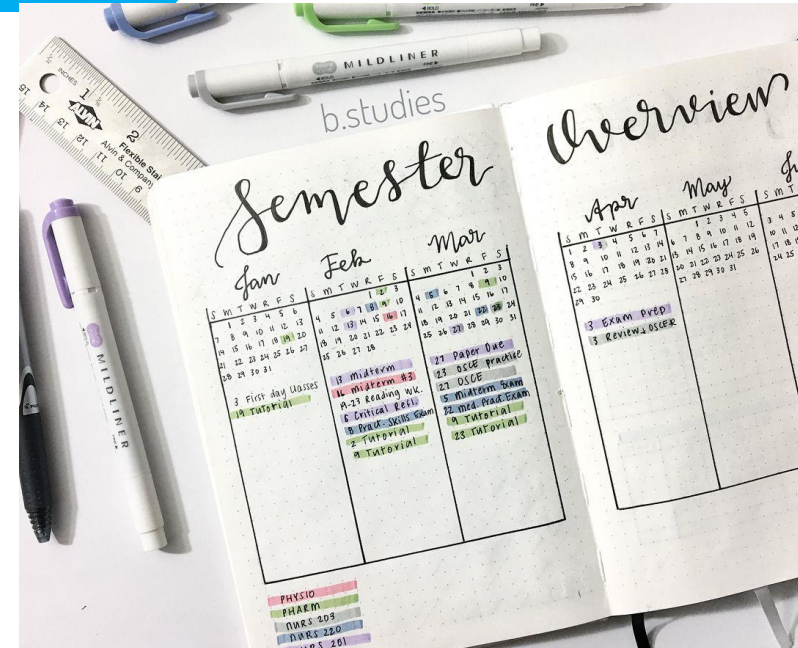 MILDLINER
b.studies
INCHES 1 2
ALVIN
Flexible Stai
Alvin & Company
MILDLINER
Semester
Overview
Jan
S M T W R F S
1 2 3 4 5 6
7 8 9 10 11 12 13
14 15 16 17 18 19 20
21 22 23 24 25 26 27
28 29 30 31
3 First day classes
19 Tutorial
Feb
S M T W R F S
1 2 3
4 5 6 7 8 9 10
11 12 13 14 15 16 17
18 19 20 21 22 23 24
25 26 27 28
13 Midterm
16 Midterm #3
19-23 Reading wk.
6 Critical Refl.
8 Pract. Skills Exam
2 Tutorial
9 Tutorial
Mar
S M T W R F S
1 2 3
4 5 6 7 8 9 10
11 12 13 14 15 16 17
18 19 20 21 22 23 24
25 26 27 28 29 30 31
27 Paper Due
23 OSCE practice
27 OSCE
5 Midterm Exam
22 med. Pract. Exam
9 Tutorial
23 Tutorial
Apr
S M T W R F S
1 2 3 4 5 6 7
8 9 10 11 12 13 14
15 16 17 18 19 20 21
22 23 24 25 26 27 28
29 30
3 Exam Prep
3 Review + OSCER
May
S M T W R F S
1 2 3 4 5
6 7 8 9 10 11 12
13 14 15 16 17 18 19
20 21 22 23 24 25 26
27 28 29 30 31
Ju
S M T
3 4 5
10 11 12
17 18 19
24 25
PHYSIO
PHARM
NURS 203
NURS 220
NURS 261